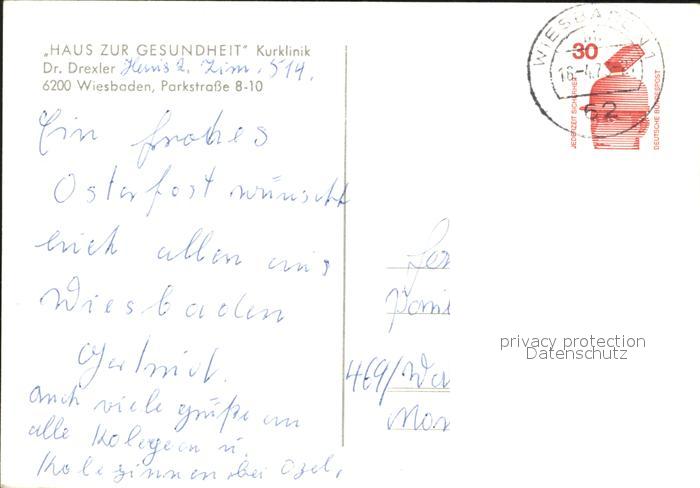 „HAUS ZUR GESUNDHEIT" Kurklinik
Dr. Drexler Haus 2. Zim. 514.
6200 Wiesbaden, Parkstraße 8-10
Ein frohes
Osterfest wünscht
euch allen aus
Wiesbaden
Gertrud.
auch viele grüße an
alle Kolegen u.
Kolezinnen bei
469/
WIESBADEN 1
62
30
JEDERZEIT SICHERHEIT
DEUTSCHE BUNDESPOST
privacy protection
Datenschutz